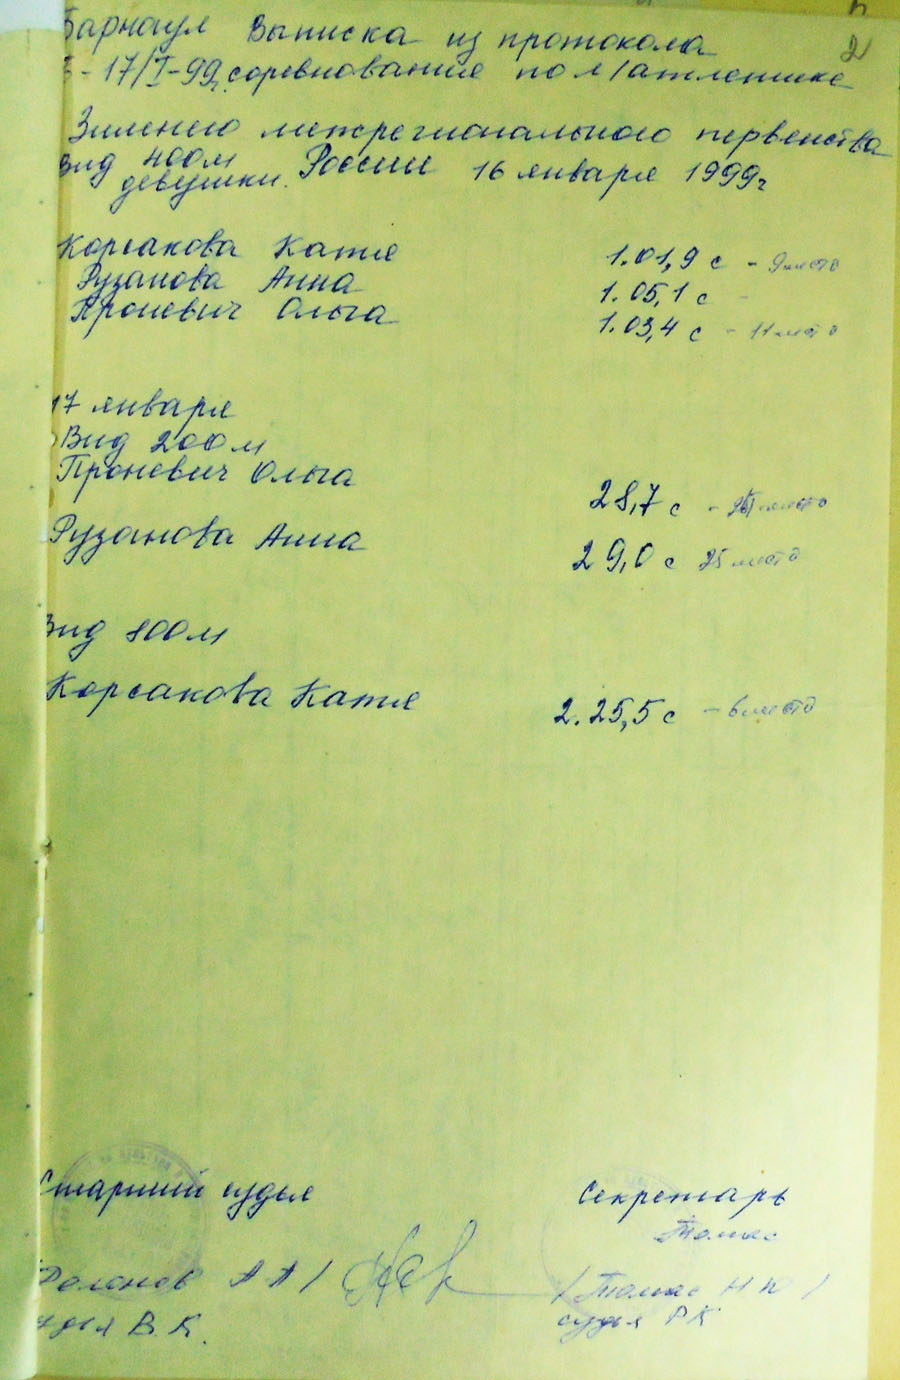 Барнаул Выписка из протокола
2
- 17/I-99г. соревнование по л/атлетике
Зимнего межрегионального первенства
Вид 400м России 16 января 1999г
девушки.
Корсакова Катя 1.01,9 с - 9 место
Рузанова Анна 1.05,1 с -
Проневич Ольга 1.03,4 с - 11 место
17 января
Вид 200м
Проневич Ольга
28,7 с - место
Рузанова Анна 29,0 с 25 место
Вид 800м
Корсакова Катя 2.25,5 с - 6 место
Старший судья Секретарь
Томас
А А / / Томас Н Ю /
судья В.К. судья РК